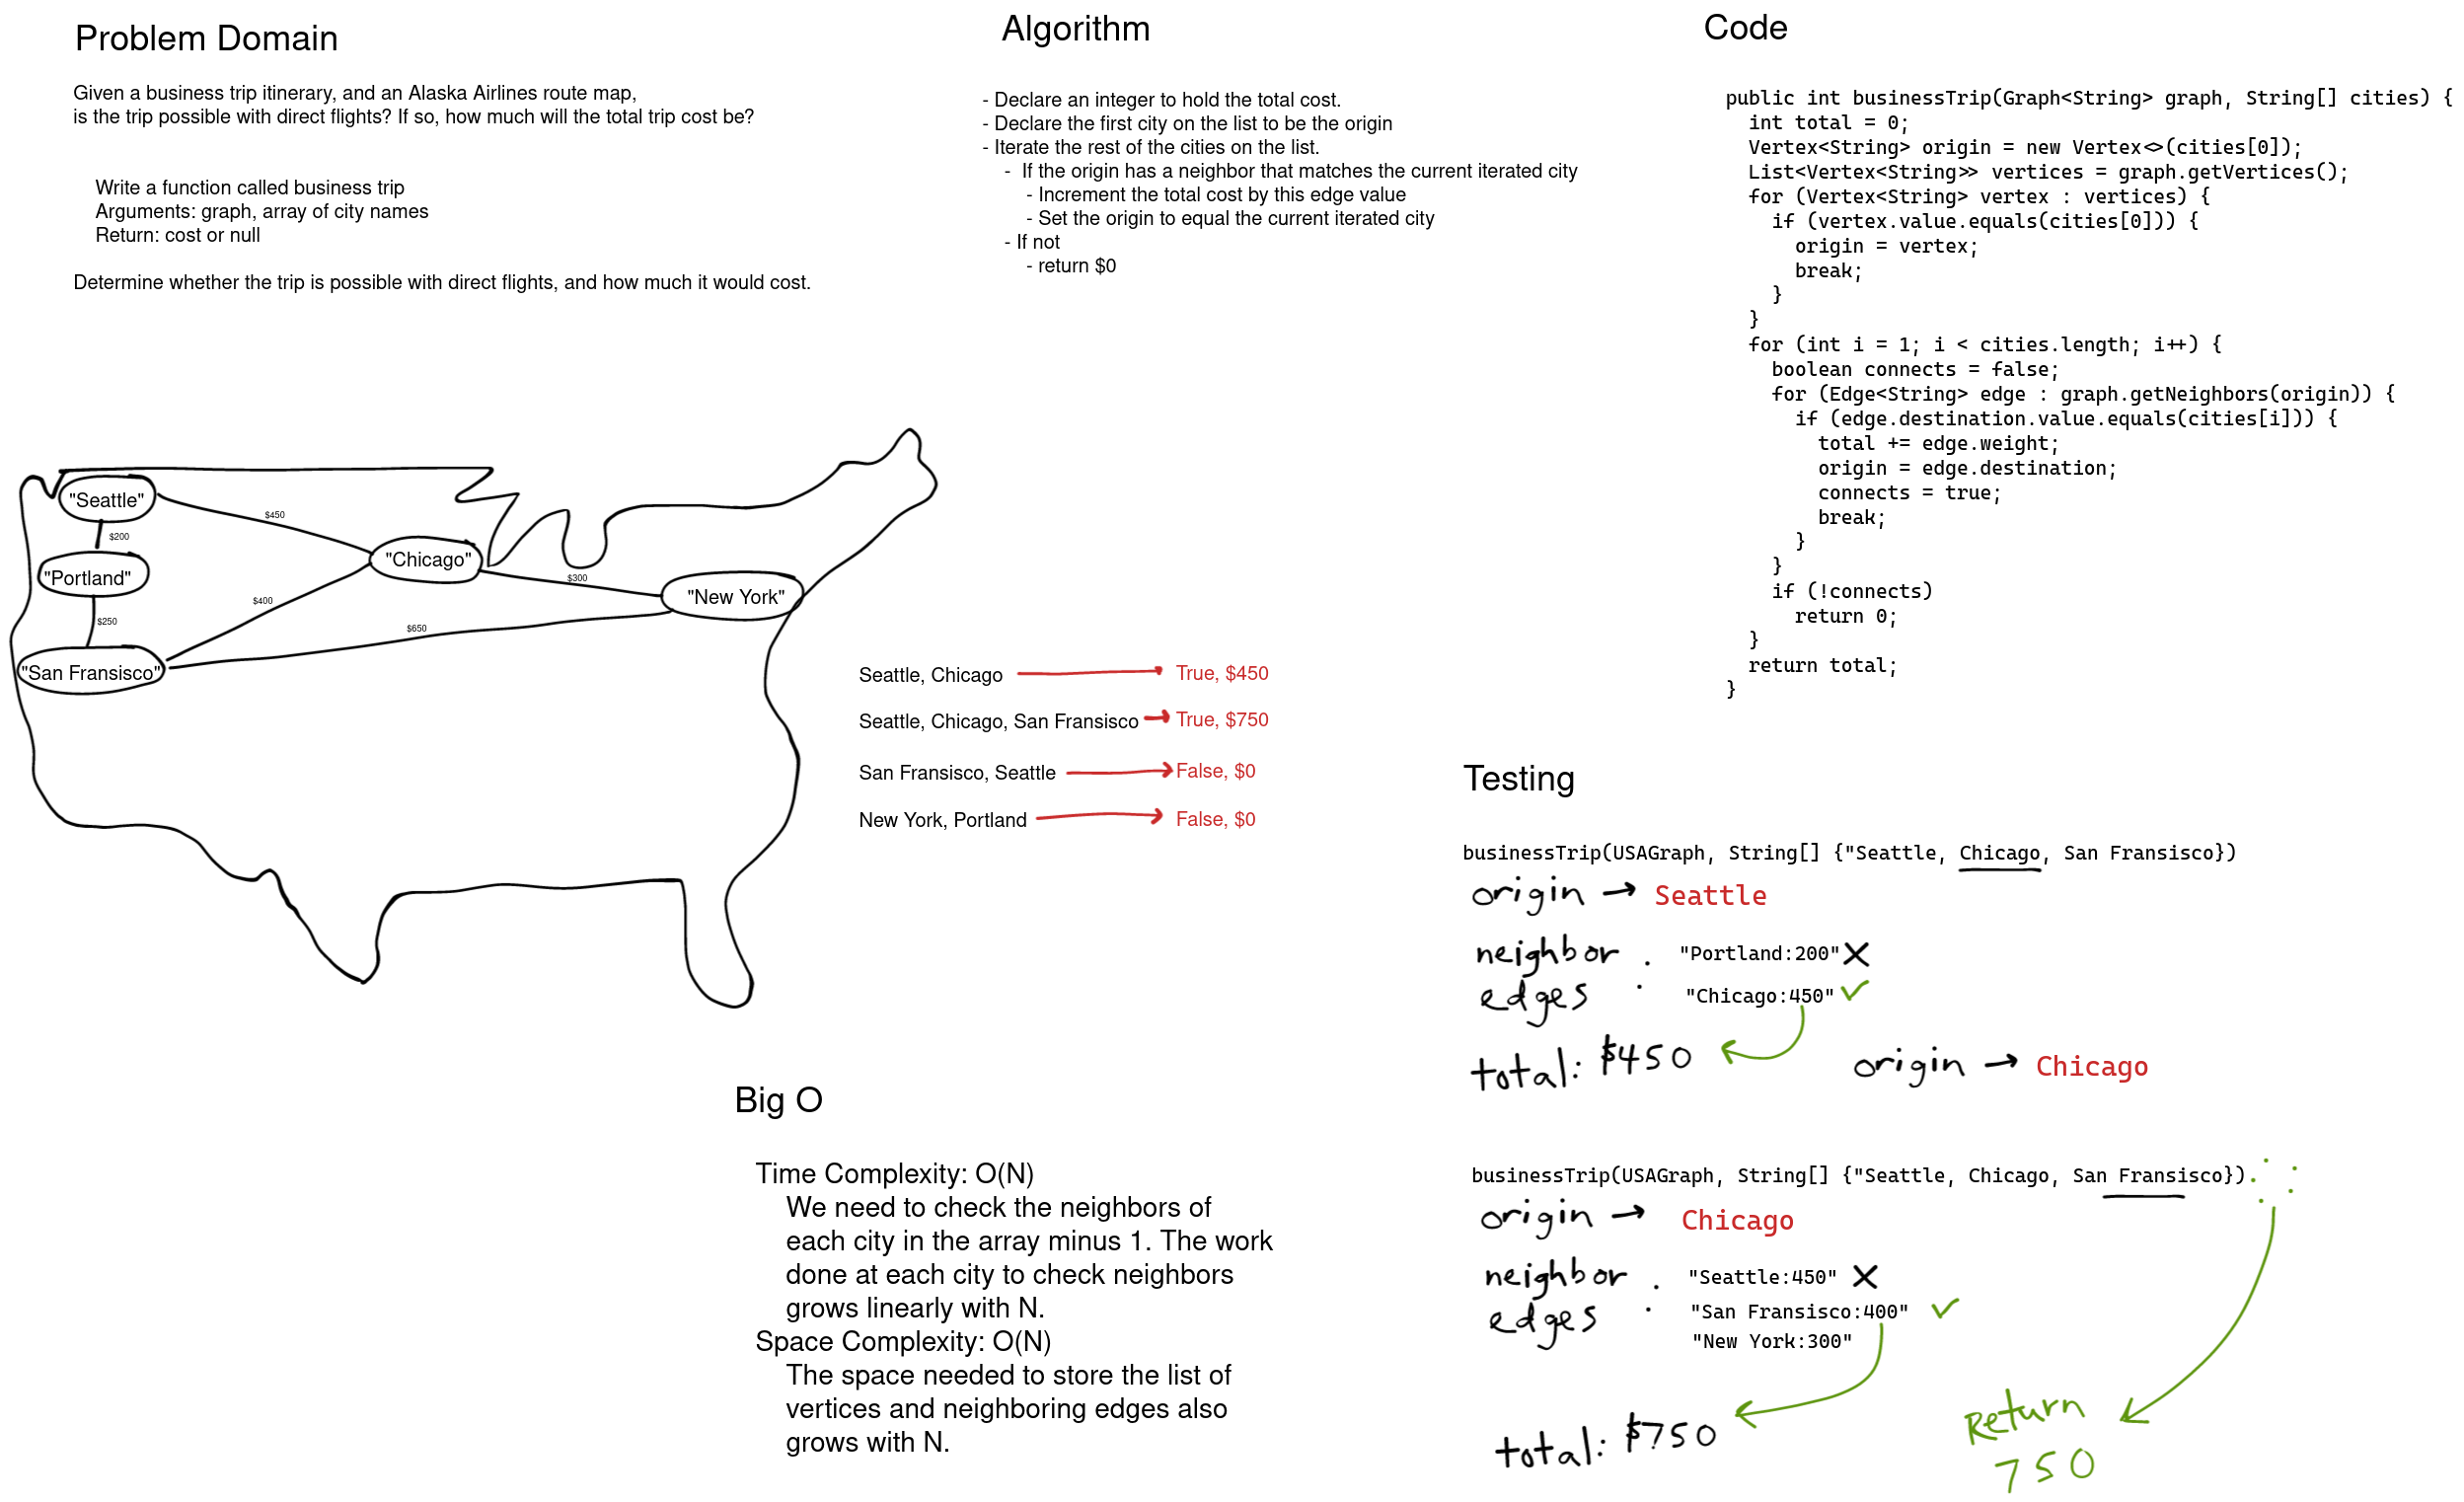 Problem Domain
Given a business trip itinerary, and an Alaska Airlines route map,
is the trip possible with direct flights? If so, how much will the total trip cost be?
Write a function called business trip
Arguments: graph, array of city names
Return: cost or null
Determine whether the trip is possible with direct flights, and how much it would cost.
"Seattle"
$450
$200
"Chicago"
"Portland"
$300
"New York"
$400
$250
$650
"San Fransisco"
Algorithm
- Declare an integer to hold the total cost.
- Declare the first city on the list to be the origin
- Iterate the rest of the cities on the list.
- If the origin has a neighbor that matches the current iterated city
- Increment the total cost by this edge value
- Set the origin to equal the current iterated city
- If not
- return $0
Seattle, Chicago True, $450
Seattle, Chicago, San Fransisco True, $750
San Fransisco, Seattle False, $0
New York, Portland False, $0
Big O
Time Complexity: O(N)
We need to check the neighbors of
each city in the array minus 1. The work
done at each city to check neighbors
grows linearly with N.
Space Complexity: O(N)
The space needed to store the list of
vertices and neighboring edges also
grows with N.
Code
public int businessTrip(Graph<String> graph, String[] cities) {
int total = 0;
Vertex<String> origin = new Vertex<>(cities[0]);
List<Vertex<String>> vertices = graph.getVertices();
for (Vertex<String> vertex : vertices) {
if (vertex.value.equals(cities[0])) {
origin = vertex;
break;
}
}
for (int i = 1; i < cities.length; i++) {
boolean connects = false;
for (Edge<String> edge : graph.getNeighbors(origin)) {
if (edge.destination.value.equals(cities[i])) {
total += edge.weight;
origin = edge.destination;
connects = true;
break;
}
}
if (!connects)
return 0;
}
return total;
}
Testing
businessTrip(USAGraph, String[] {"Seattle, Chicago, San Fransisco})
origin → Seattle
neighbor : "Portland:200" X
edges "Chicago:450" ✓
total: $450
origin → Chicago
businessTrip(USAGraph, String[] {"Seattle, Chicago, San Fransisco})
origin → Chicago
neighbor : "Seattle:450" X
edges "San Fransisco:400" ✓
"New York:300"
total: $750
Return
750